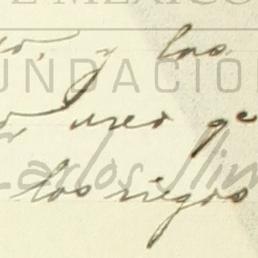 E MÉXICO
o, y las
FUNDACIO
o creo qe
Carlos Slim
los riegos